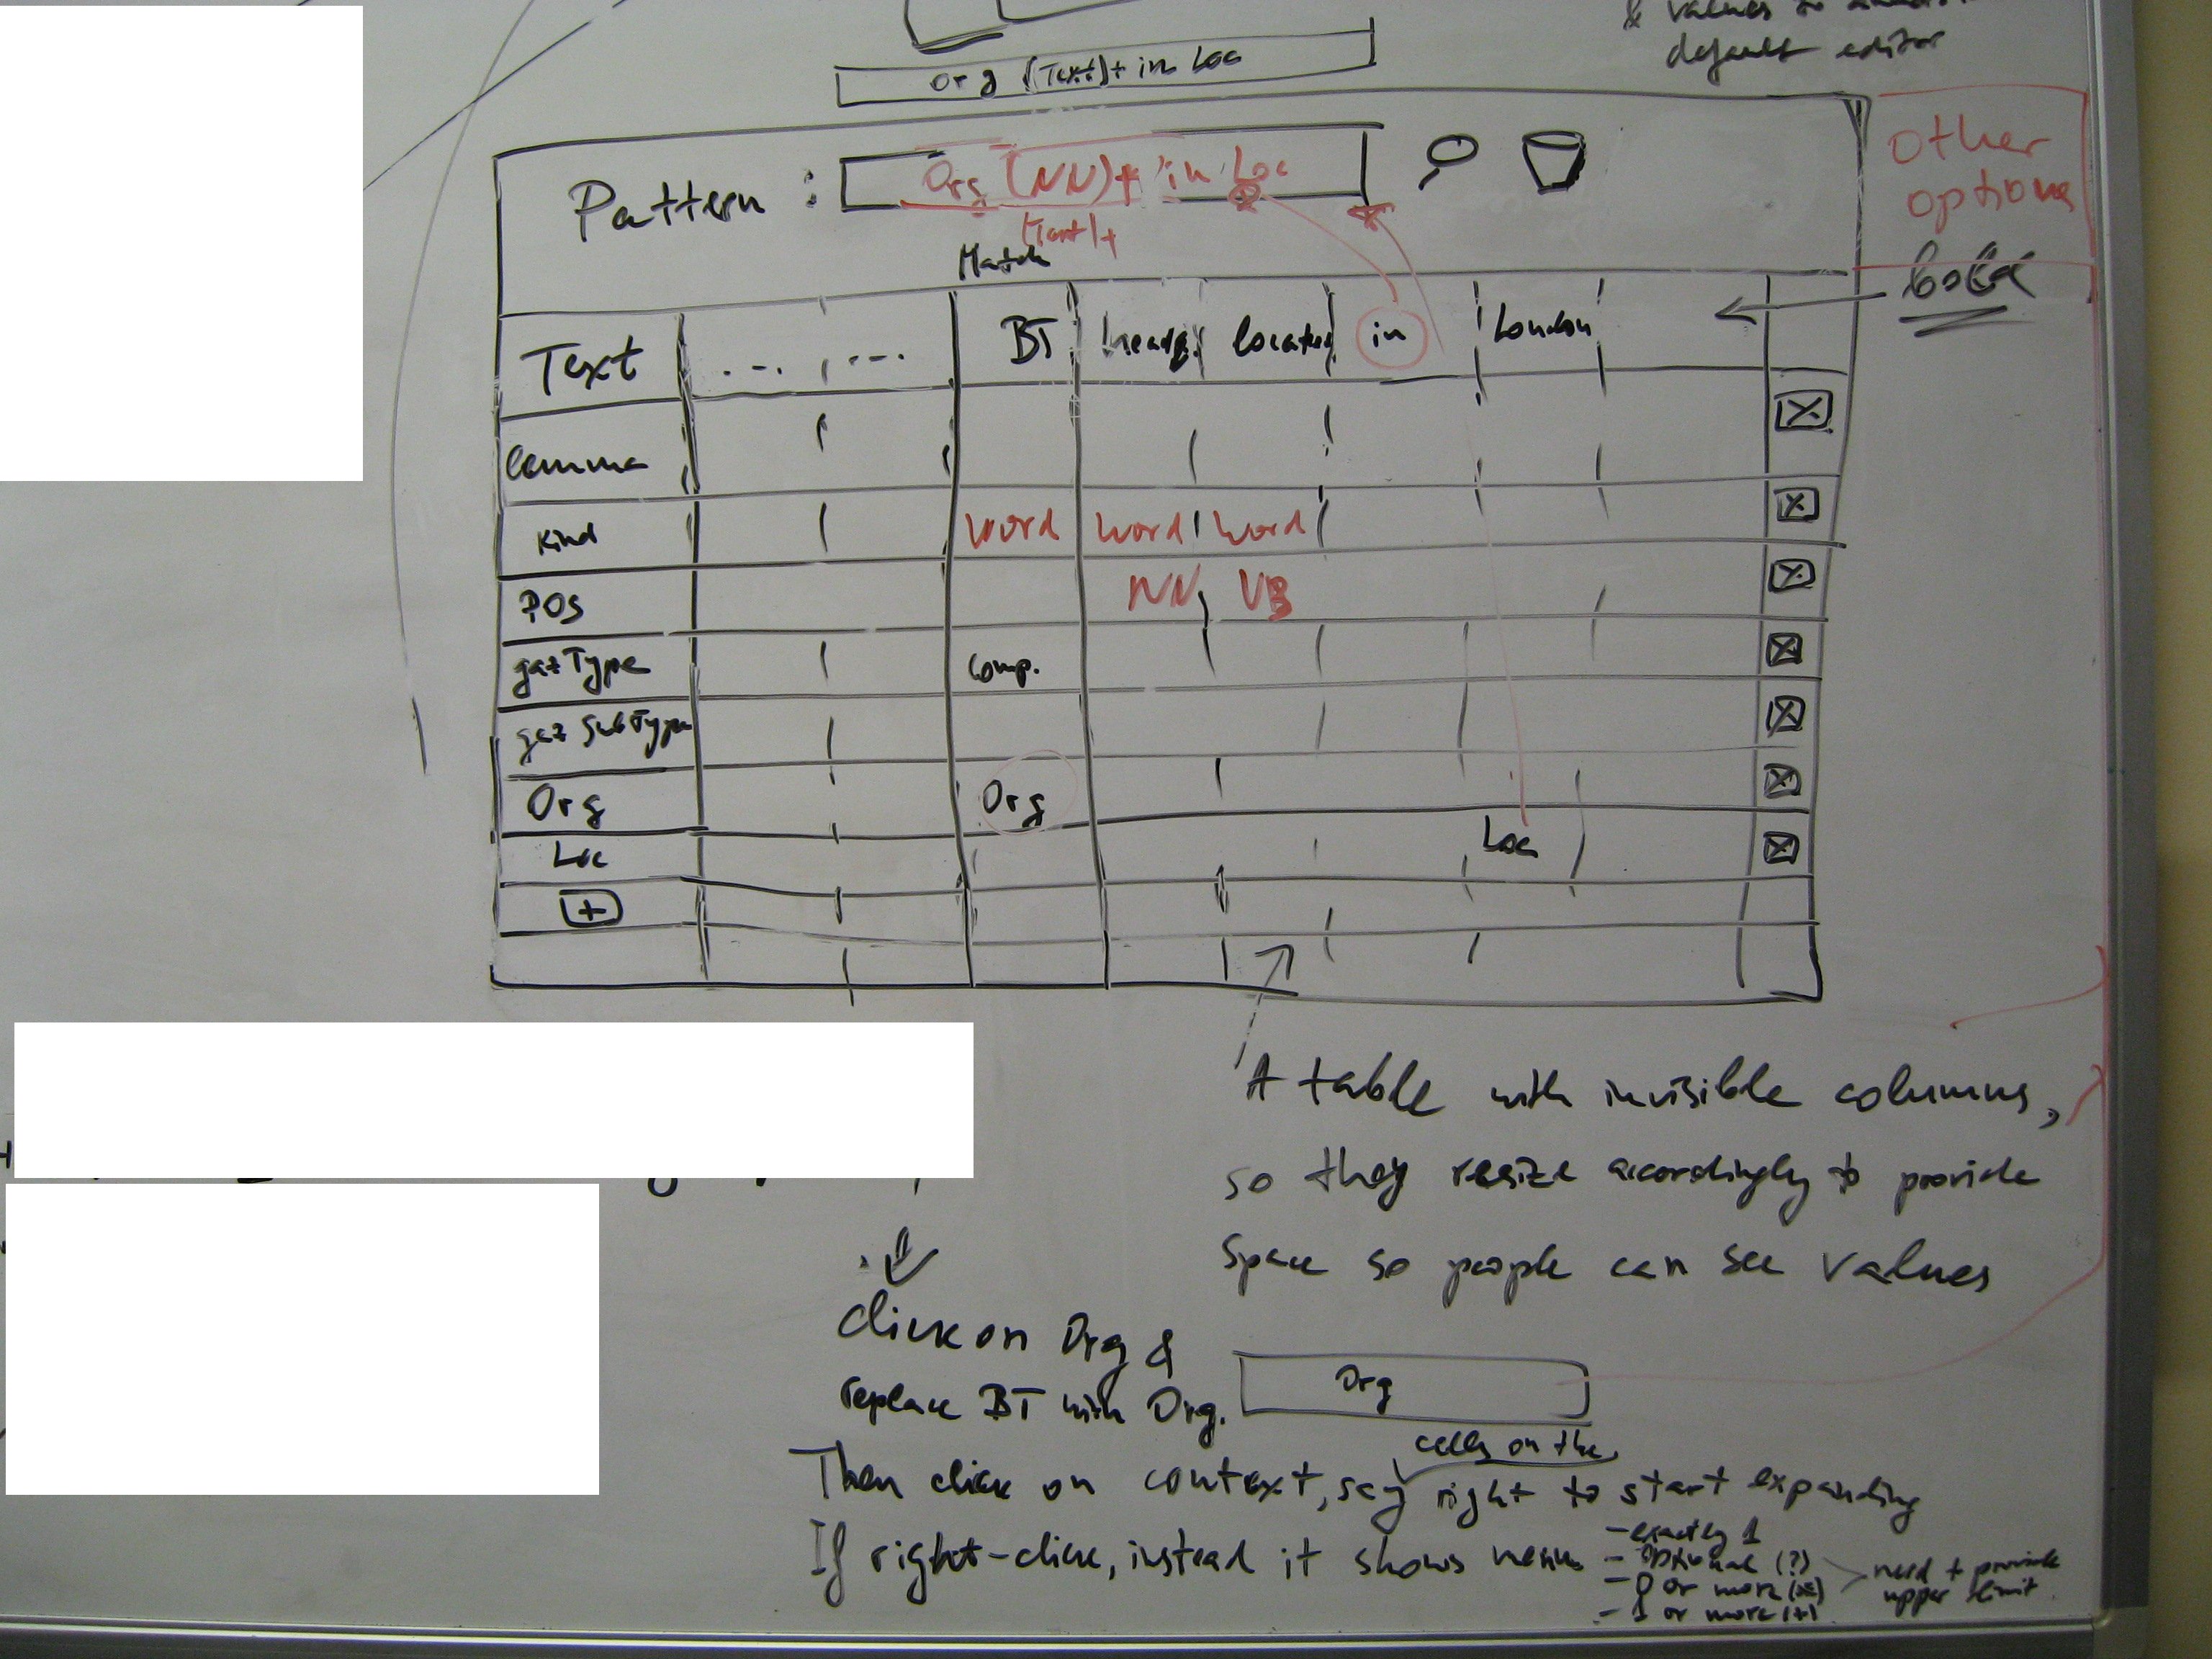 & values
default editor
Org (Text)+ in Loc
Pattern : Org (NN)+ in Loc
(Text)+
Other
options
Match
bold
Text ... ... BT headq. located in London
lemma
Kind word word word
POS NN VB
gazType Comp.
gazSubType
Org Org
Loc Loc
+
A table with invisible columns,
so they resize accordingly to provide
space so people can see values
click on Org &
replace BT with Org. Org
cells on the
Then click on context, say right to start expanding
If right-click, instead it shows menu
- exactly 1
- optional (?)
- 0 or more (*)
- 1 or more (+)
need to provide
upper limit